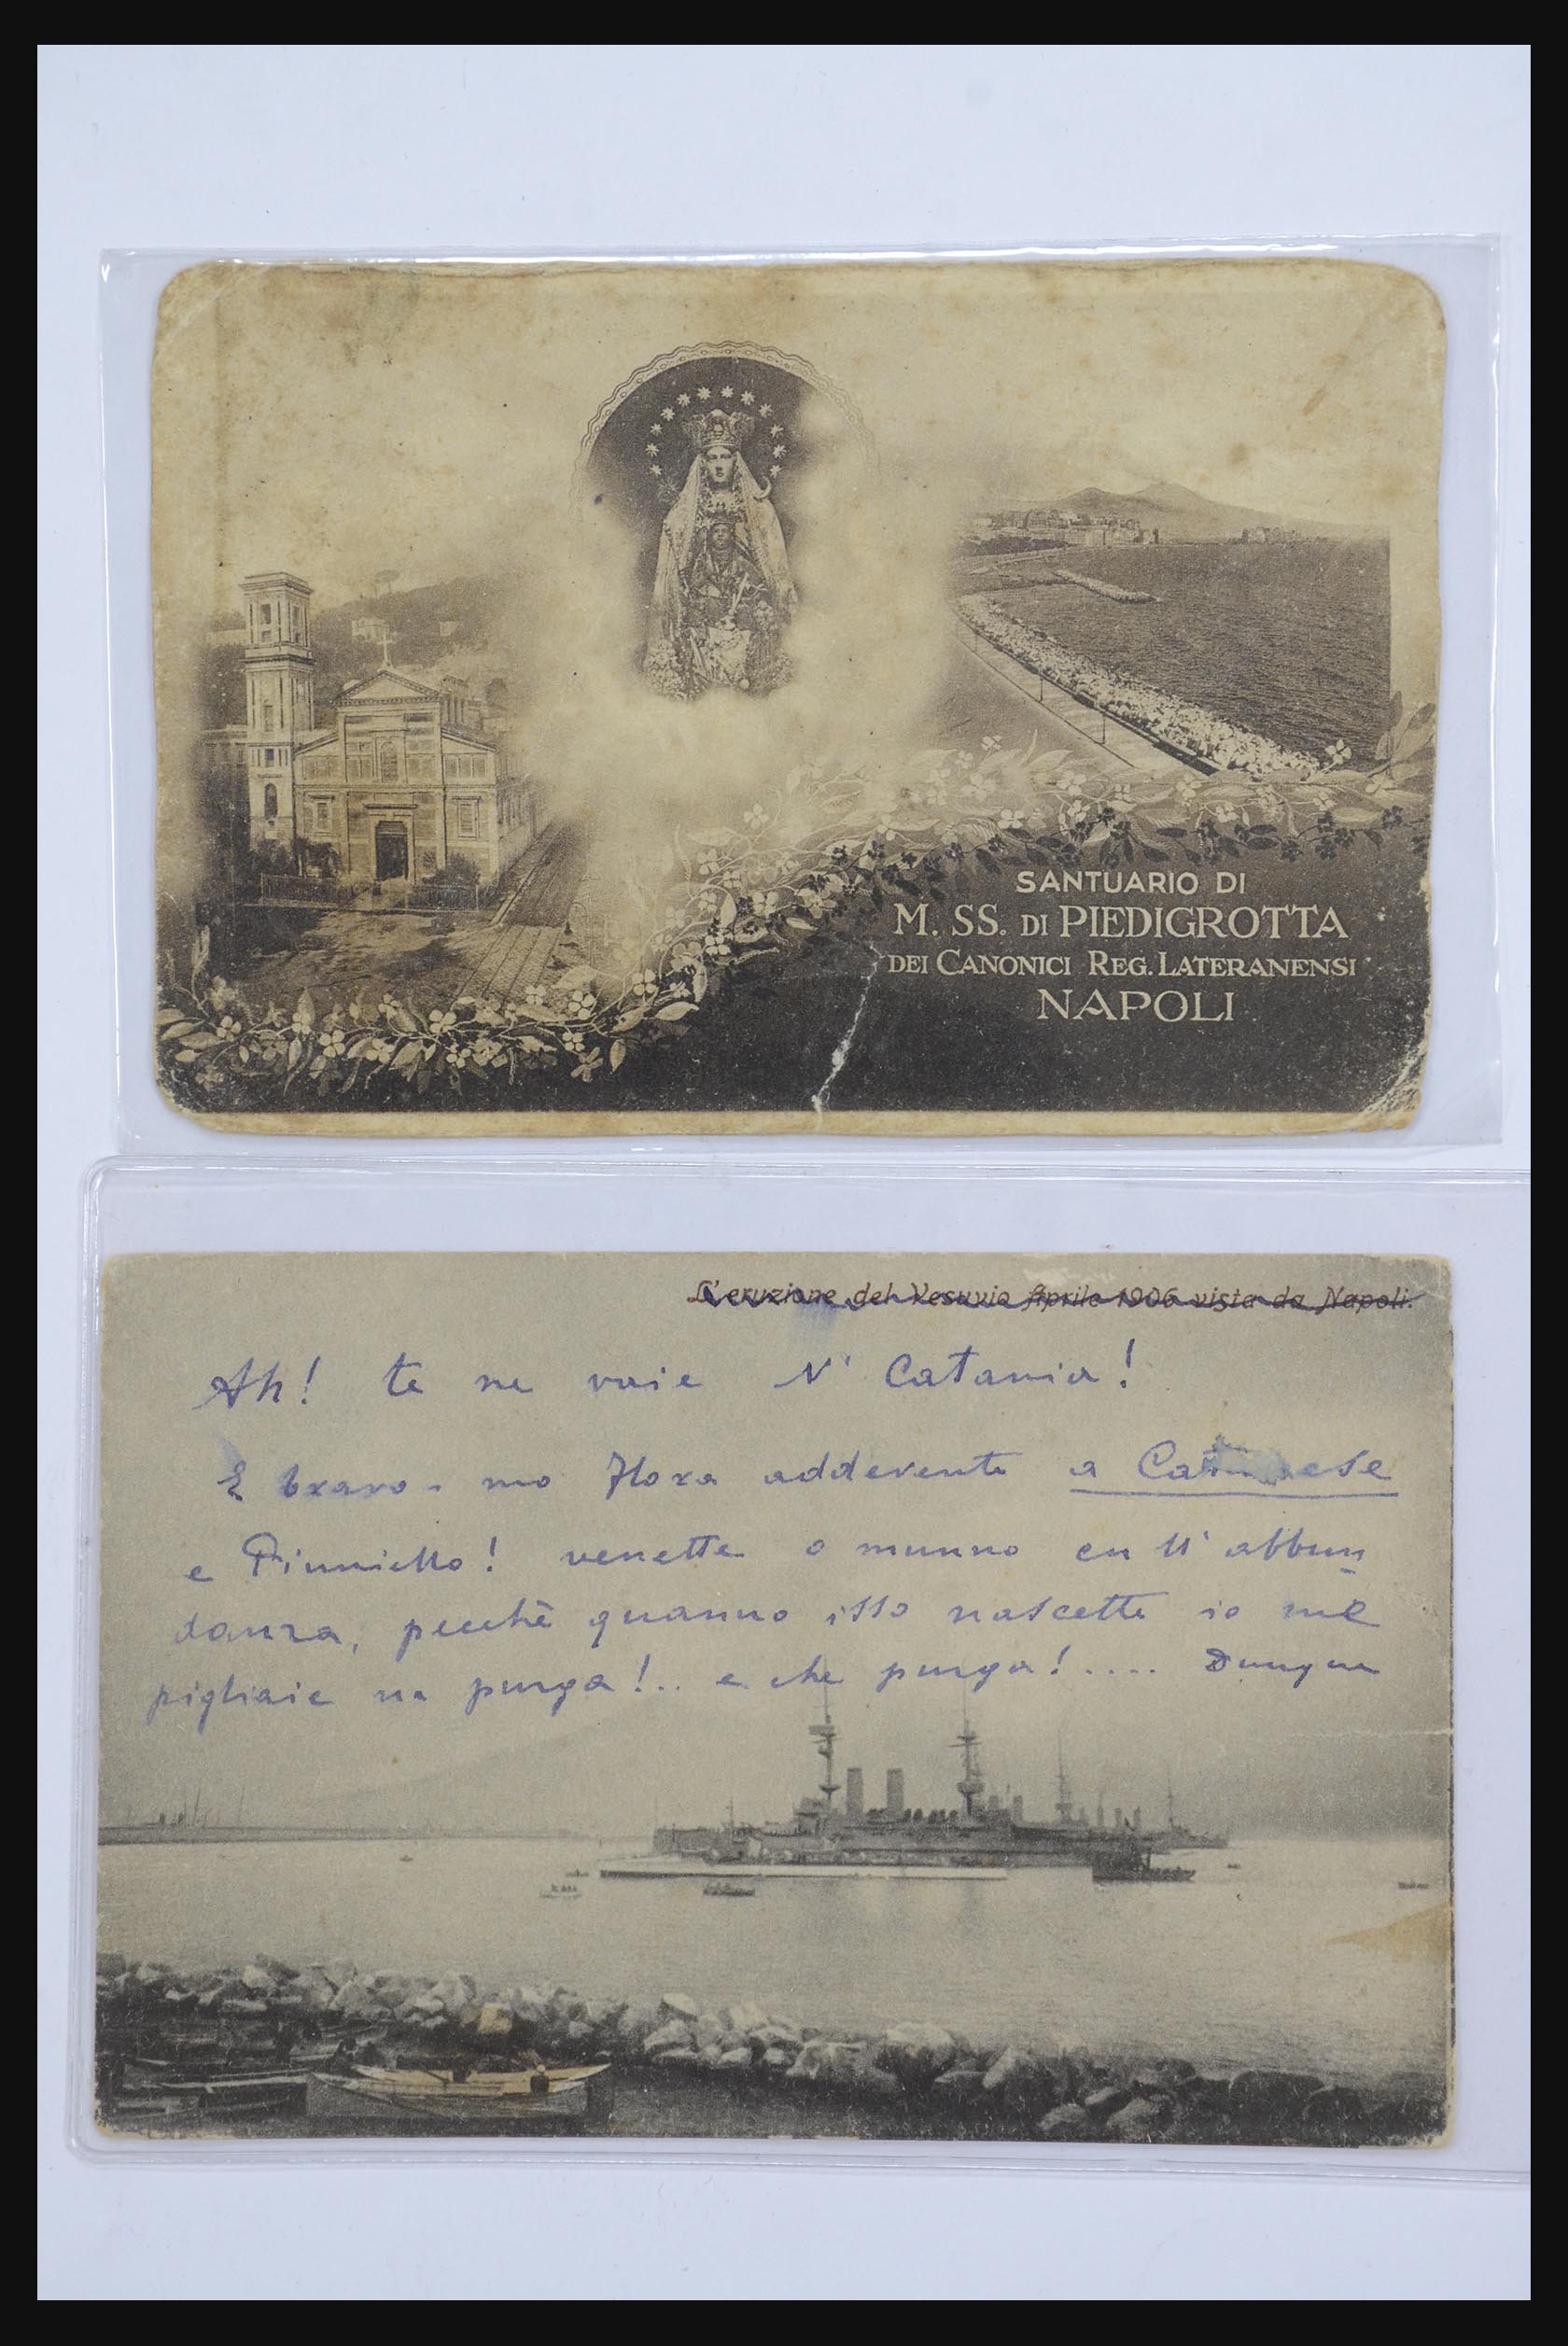 SANTUARIO DI
M. SS. DI PIEDIGROTTA
DEI CANONICI REG. LATERANENSI
NAPOLI
L'eruzione del Vesuvio Aprile 1906 vista da Napoli.
Ah! te ne vaie N' Catania!
E bravo - mo Flora addeventa a
e ! venette o munno cu ll' abbun
danza, pecchè quanno isso nascette io me
pigliaie na purga!.. e che purga!.... Dunque